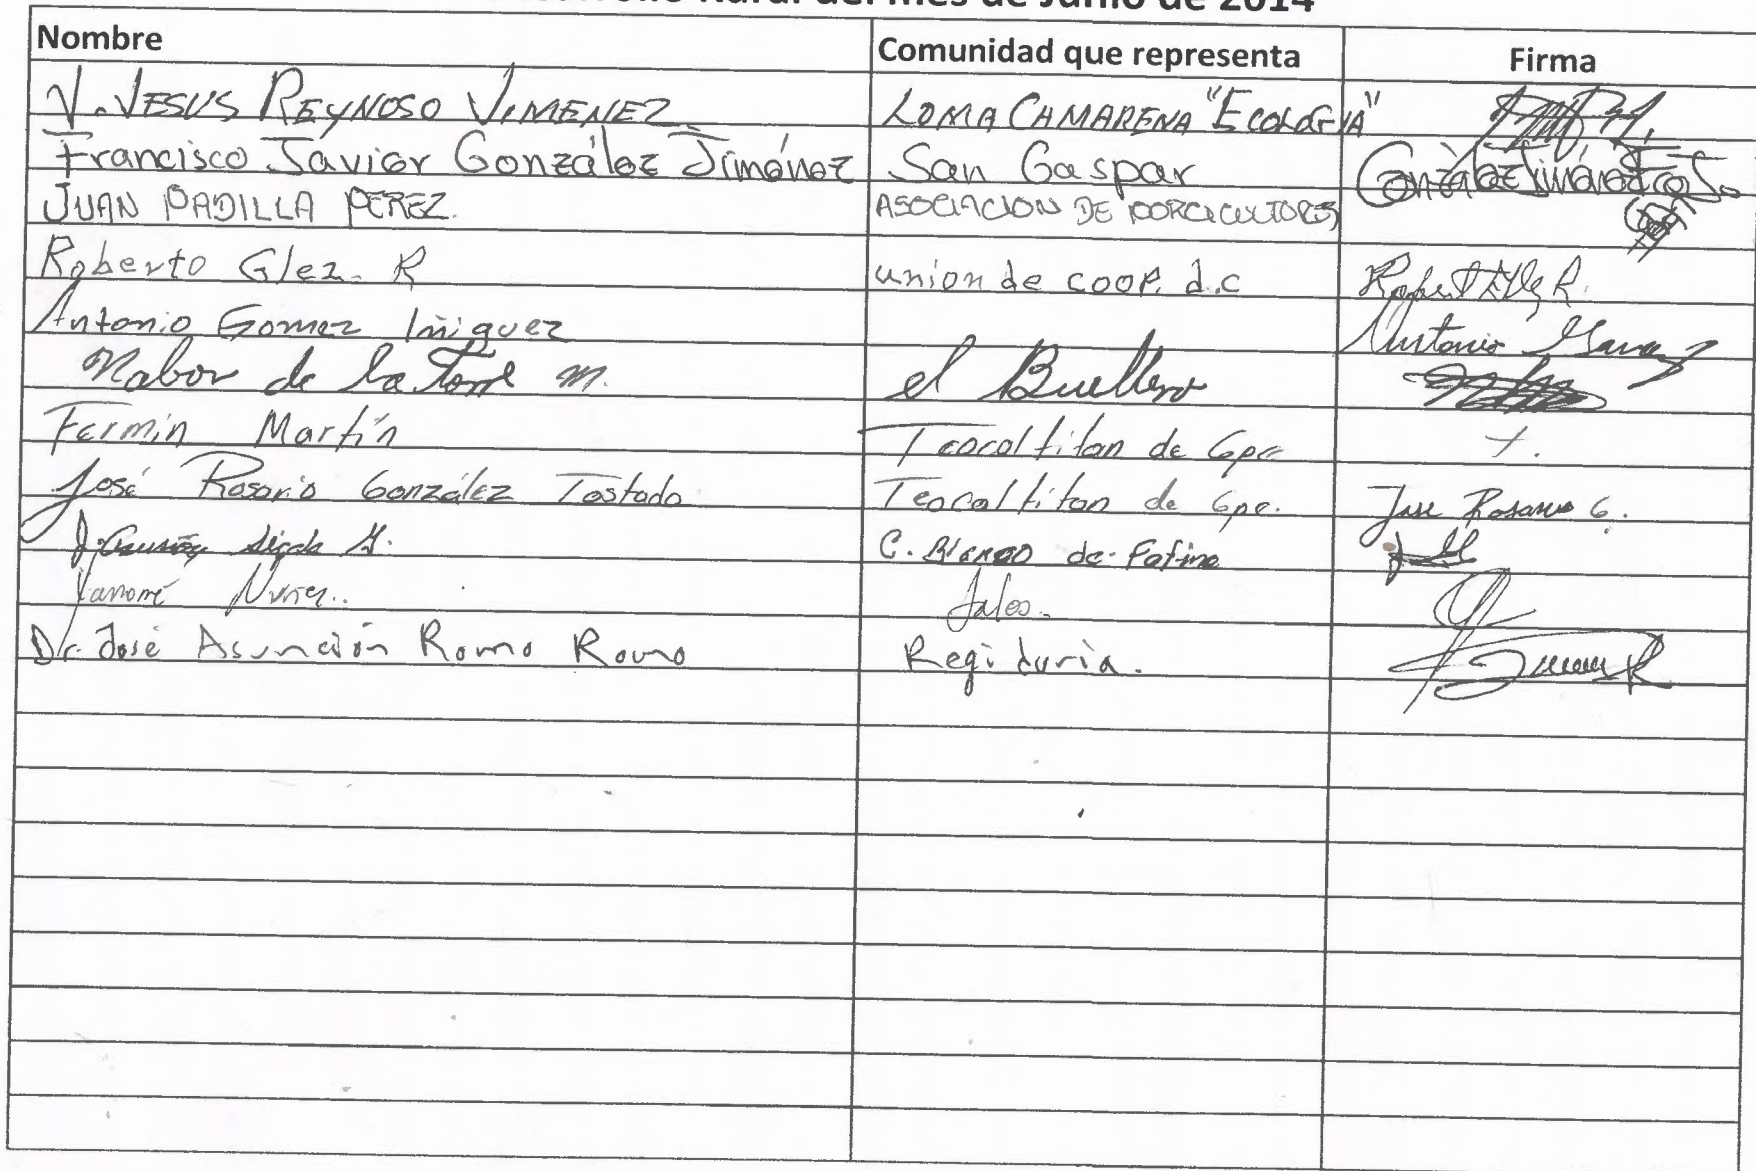 Rural del mes de Junio de 2014
Nombre Comunidad que representa Firma
J. JESUS REYNOSO JIMENEZ LOMA CAMARENA "ECOLOGIA"
Francisco Javier González Jiménez San Gaspar González Jiménez Fco Jo
JUAN PADILLA PEREZ. ASOCIACION DE PORCICULTORES
Roberto Glez. R union de coop. d.c Robert Glz R.
Antonio Gomez Iñiguez Antonio
Nabor de la Torre M. el
Fermín Martín Teocaltitan de Gpe +.
José Rosario González Tostado Teocaltitan de Gpe. Jose Rosario G.
C. Blanco de Fatima
Nuñez.. Jalos.
Dr. José Asunción Romo Romo Regiduria.